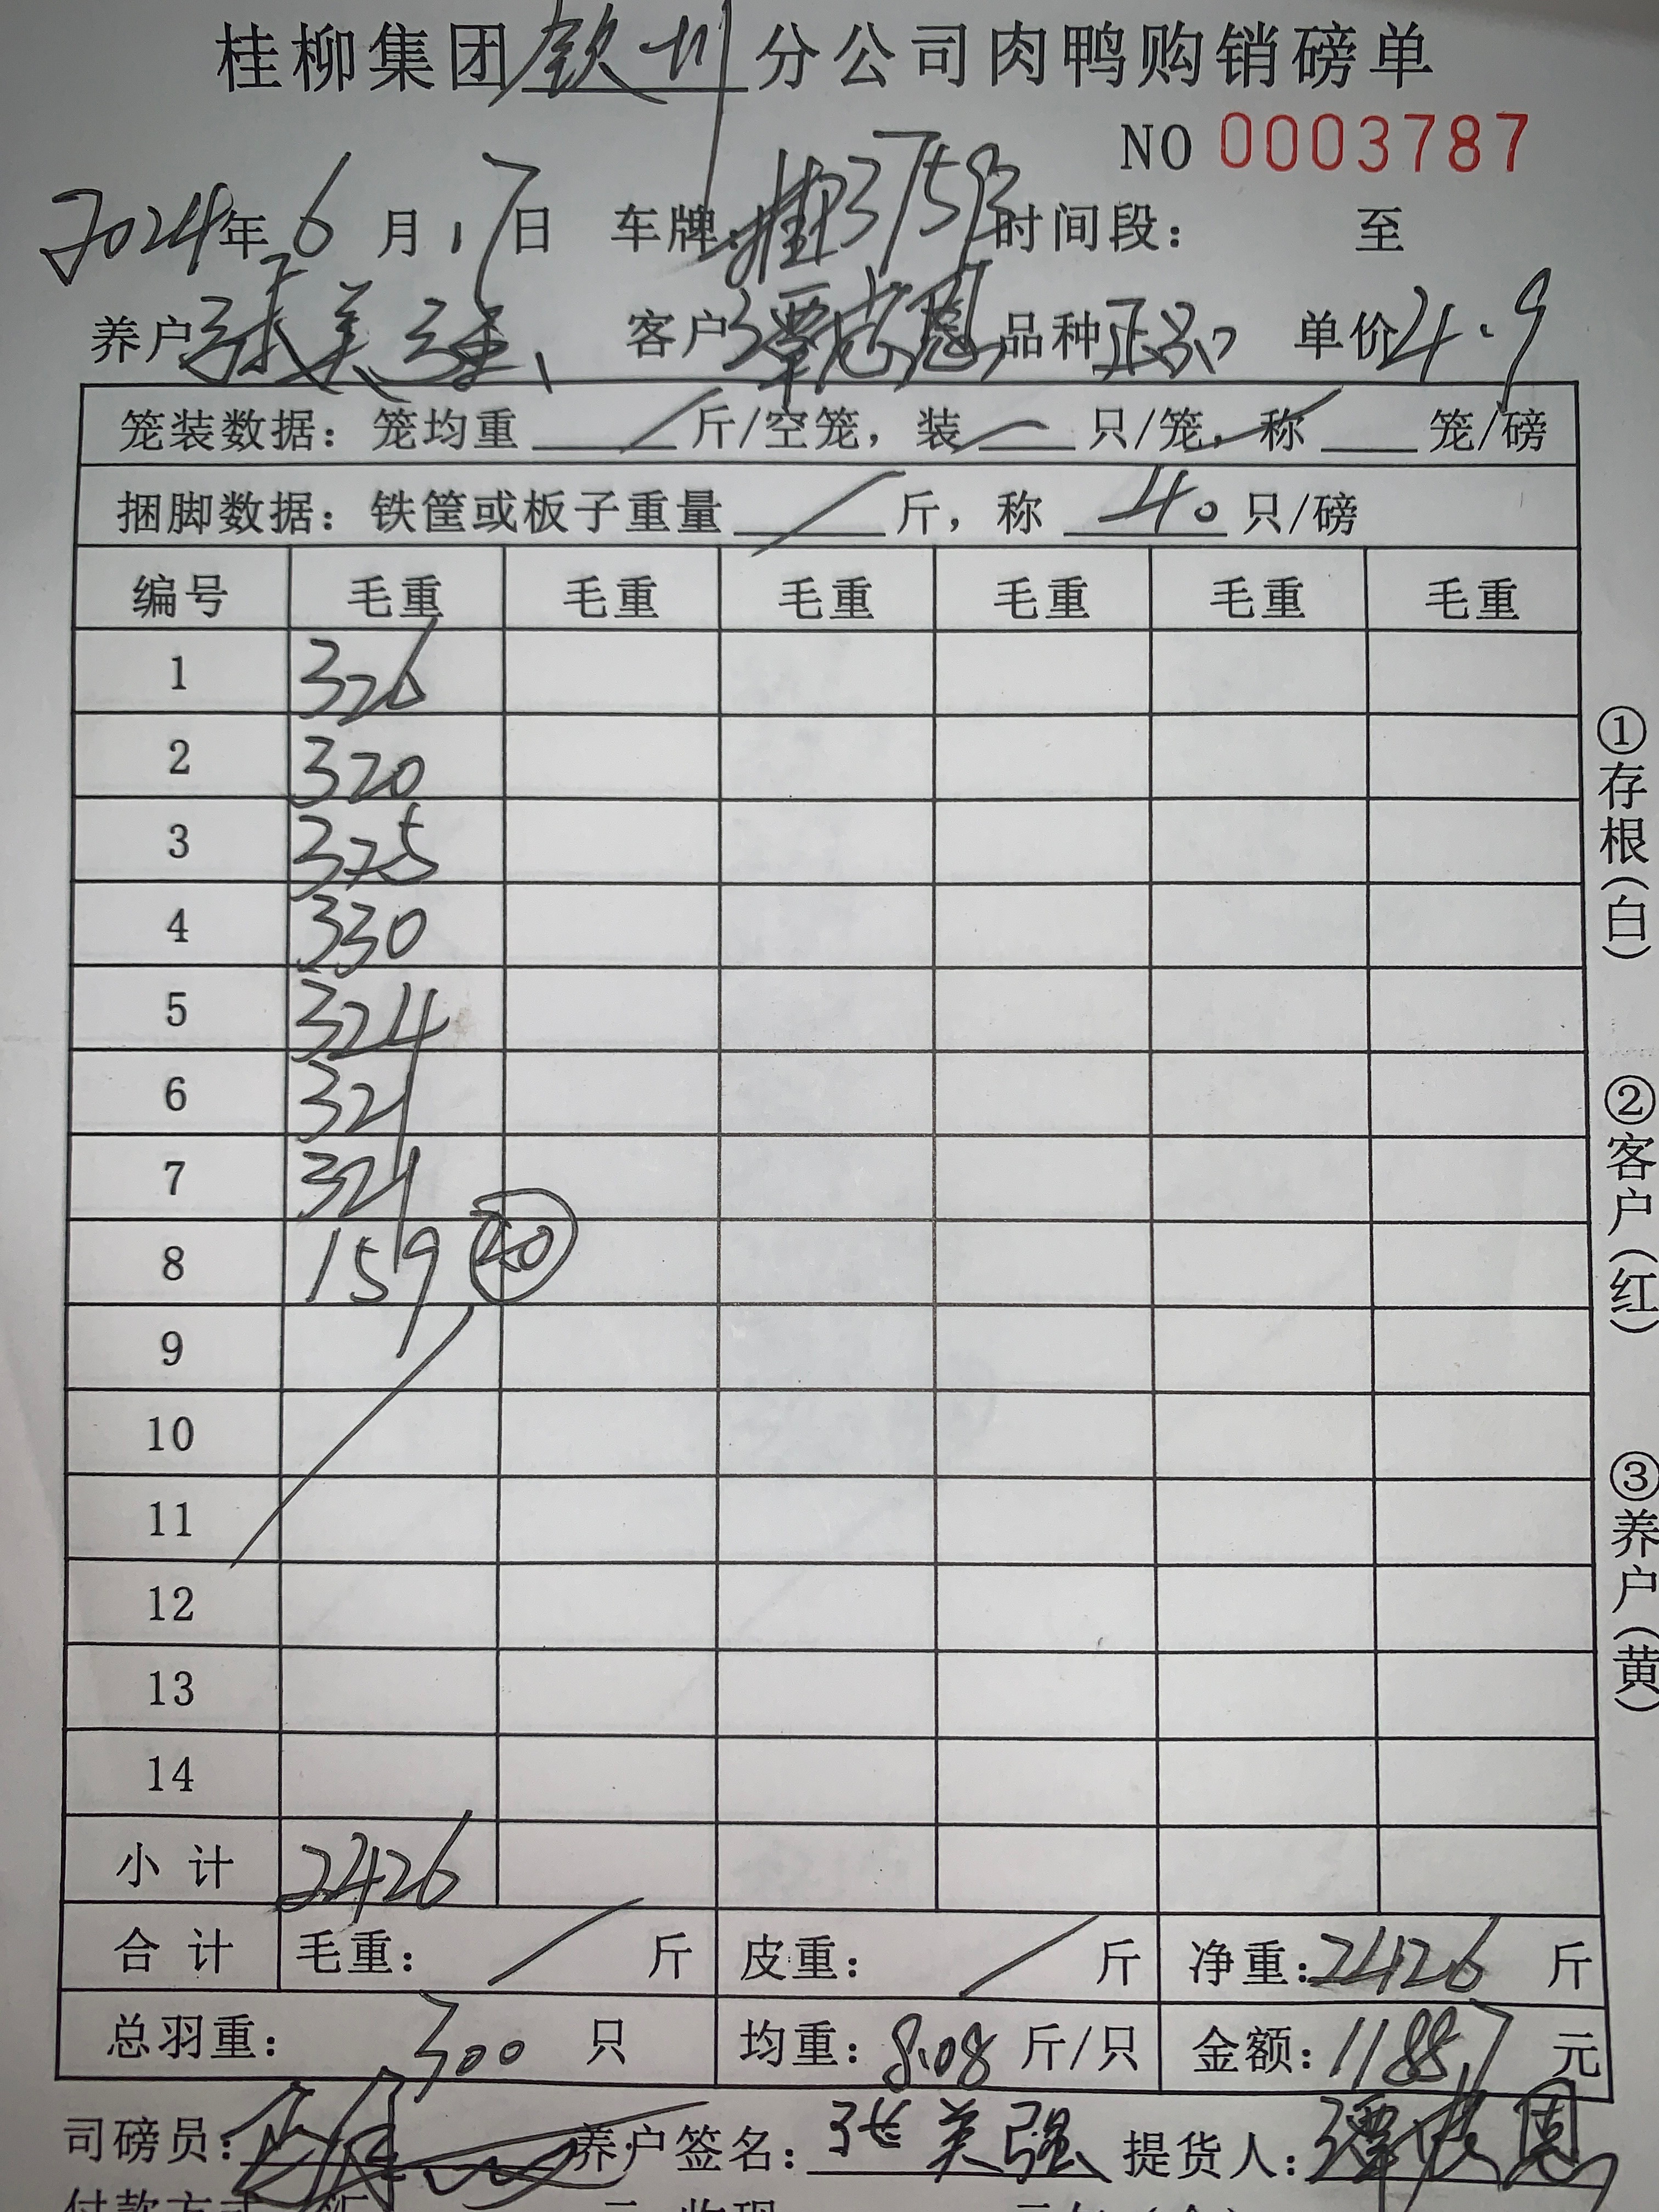 桂柳集团钦州分公司肉鸭购销磅单
NO 0003787
2024年6月17日 车牌:桂P3759 时间段: 至
养户张美强 客户谭忠恩 品种正品 单价4.9
笼装数据:笼均重 斤/空笼,装 只/笼,称 笼/磅
捆脚数据:铁筐或板子重量 斤,称 40 只/磅
编号 毛重 毛重 毛重 毛重 毛重 毛重
1 326
2 320
3 325
4 330
5 324
6 321
7 321
8 159 20
9
10
11
12
13
14
小计 2426
合计 毛重: 斤 皮重: 斤 净重:2426 斤
总羽重: 300 只 均重:8.08 斤/只 金额:11887 元
司磅员: 养户签名:张美强 提货人:谭忠恩
付款方式
①存根(白) ②客户(红) ③养户(黄)